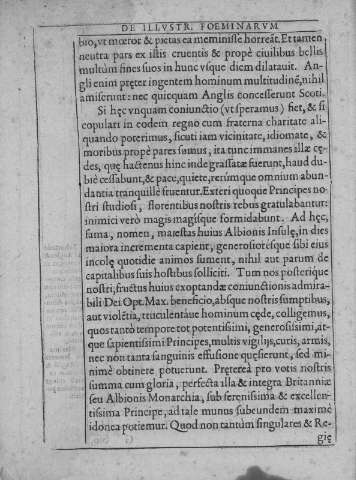 DE ILLVSTR. FOEMINARVM
bio, vt mœror & pietas ea meminisse horreat. Et tamen
neutra pars ex istis cruentis & propè ciuilibus bellis
multùm fines suos in hunc vsque diem dilatauit. An-
gli enim pręter ingentem hominum multitudinē, nihil
amiserunt: nec quicquam Anglis concesserunt Scoti.
Si hęc vnquam coniunctio (vt speramus) fiet, & si
copulari in eodem regno cum fraterna charitate ali-
quando poterimus, sicuti iam vicinitate, idiomate, &
moribus propè pares sumus, ita tunc immanes illæ cę-
des, quę hactenus hinc inde grassatæ fuerunt, haud du-
biè cessabunt, & pace, quiete, rerúmque omnium abun-
dantia tranquillè fruentur. Exteri quoque Principes no-
stri studiosi, florentibus nostris rebus gratulabantur:
inimici verò magis magísque formidabunt. Ad hęc,
fama, nomen, maiestas huius Albionis Insulę, in dies
maiora incrementa capient, generosiorésque sibi eius
incolę quotidie animos sument, nihil aut parum de
capitalibus suis hostibus solliciti. Tum nos posterique
nostri, fructus huius exoptandæ coniunctionis admira-
bili Dei Opt. Max. beneficio, absque nostris sumptibus,
aut violētia, truculentáue hominum cęde, colligemus,
quos tantò tempore tot potentissimi, generosissimi, at-
que sapientissimi Principes, multis vigilijs, curis, armis,
nec non tanta sanguinis effusione quęsierunt, sed mi-
nimè obtinere potuerunt. Prętereà pro votis nostris
summa cum gloria, perfecta illa & integra Britanniæ
seu Albionis Monarchia, sub serenissima & excellen-
tissima Principe, ad tale munus subeundem maximè
idonea potiemur. Quod non tantùm singulares & Re-
gię